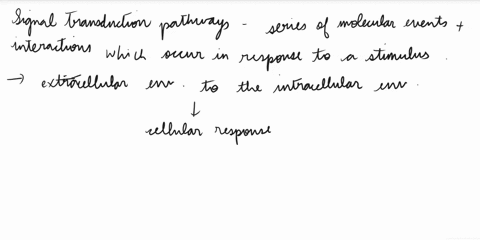 Signal transduction pathways - series of molecular events +
interactions which occur in response to a stimulus.
→ extracellular env. to the intracellular env.
↓
cellular response